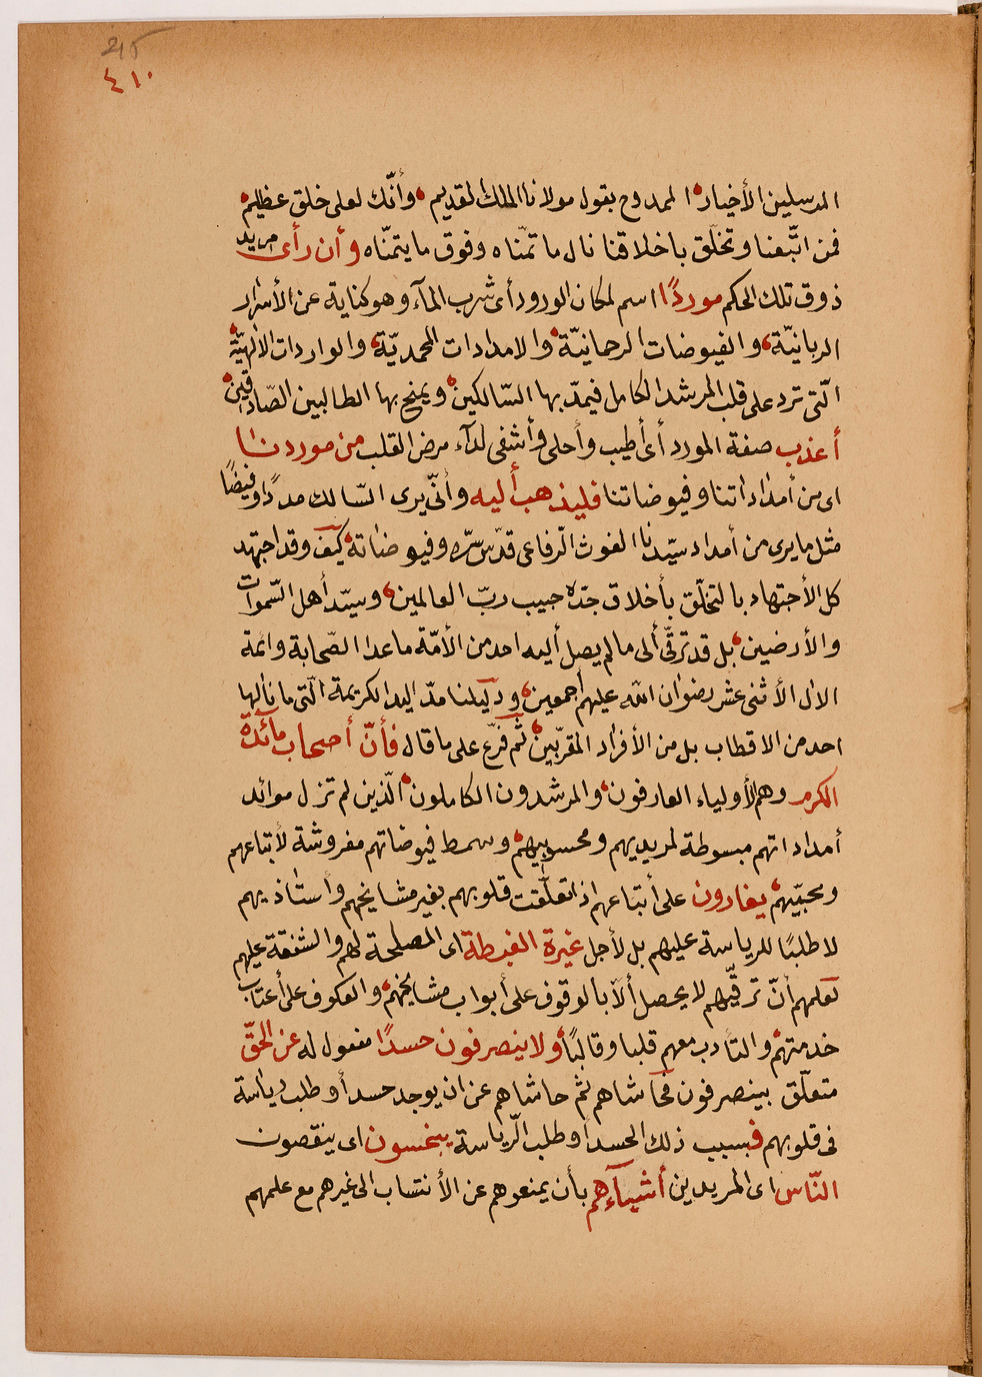 215
٤١٠
المرسلين الأخيار الممدوح بقول مولانا الملك القديم وأنّك لعلى خلق عظيم
فمن اتّبعنا وتخلّق باخلاقنا نال ما تمنّاه وفوق ما يتمنّاه وأن رأى مريد
ذوق تلك الحكم موردًا اسم لمكان الورود أى شرب المآء وهو كناية عن الأسرار
الربانيّة والفيوضات الرحمانيّة والامدادات المحمديّة والواردات الالهيّة
الّتى ترد على قلب المرشد الكامل فيمدّ بها السّالكين ويمنح بها الطالبين الصّادقين
أعذب صفة المورد أى أطيب وأحلى وأشفى لدآء مرض القلب من موردنا
اى من أمداداتنا وفيوضاتنا فليذهب أليه وأنّى يرى السّالك مددًا وفيضًا
مثل ما يرى من أمداد سيّدنا الغوث الرّفاعى قدّس سرّه وفيوضاته كيف وقد اجتهد
كل الأجتهاد بالتخلّق بأخلاق جدّه حبيب ربّ العالمين وسيّد أهل السّموات
والأرضين بل قد ترقّى ألى ما لم يصل أليه احد من الأمّة ما عدا الصّحابة وائمة
الال الأثنى عشر رضوان الله عليهم أجمعين ودليلنا مدّ اليد الكريمة الّتى ما نالها
احد من الاقطاب بل من الأفراد المقرّبين ثم فرّع على ما قال فأنّ أصحاب مآئدة
الكرم وهم الأولياء العارفون والمرشدون الكاملون الّذين لم تزل موائد
أمداداتهم مبسوطة لمريديهم ومحسوبيهم وسمط فيوضاتهم مفروشة لأتباعهم
ومحبّيهم يغارون على أتباعهم اذا تعلّقت قلوبهم بغير مشايخهم واستاذيهم
لا طلبًا للرياسة عليهم بل لأجل غيرة الغبطة اى المصلحة لهم والشفقة عليهم
لعلمهم أنّ ترقّيهم لا يحصل ألّا بالوقوف على أبواب مشايخهم والعكوف على أعتاب
خدمتهم والتأدب معهم قلبا وقالبًا ولا ينصرفون حسدًا مفعول له عن الحقّ
متعلّق بينصرفون فحاشاهم ثم حاشاهم عن ان يوجد حسد أو طلب رياسة
فى قلوبهم فبسبب ذلك الحسد او طلب الرّياسة يبخسون اى ينقصون
النّاس اى المريدين أشيآءهم بأن يمنعوهم عن الأنتساب الى غيرهم مع علمهم